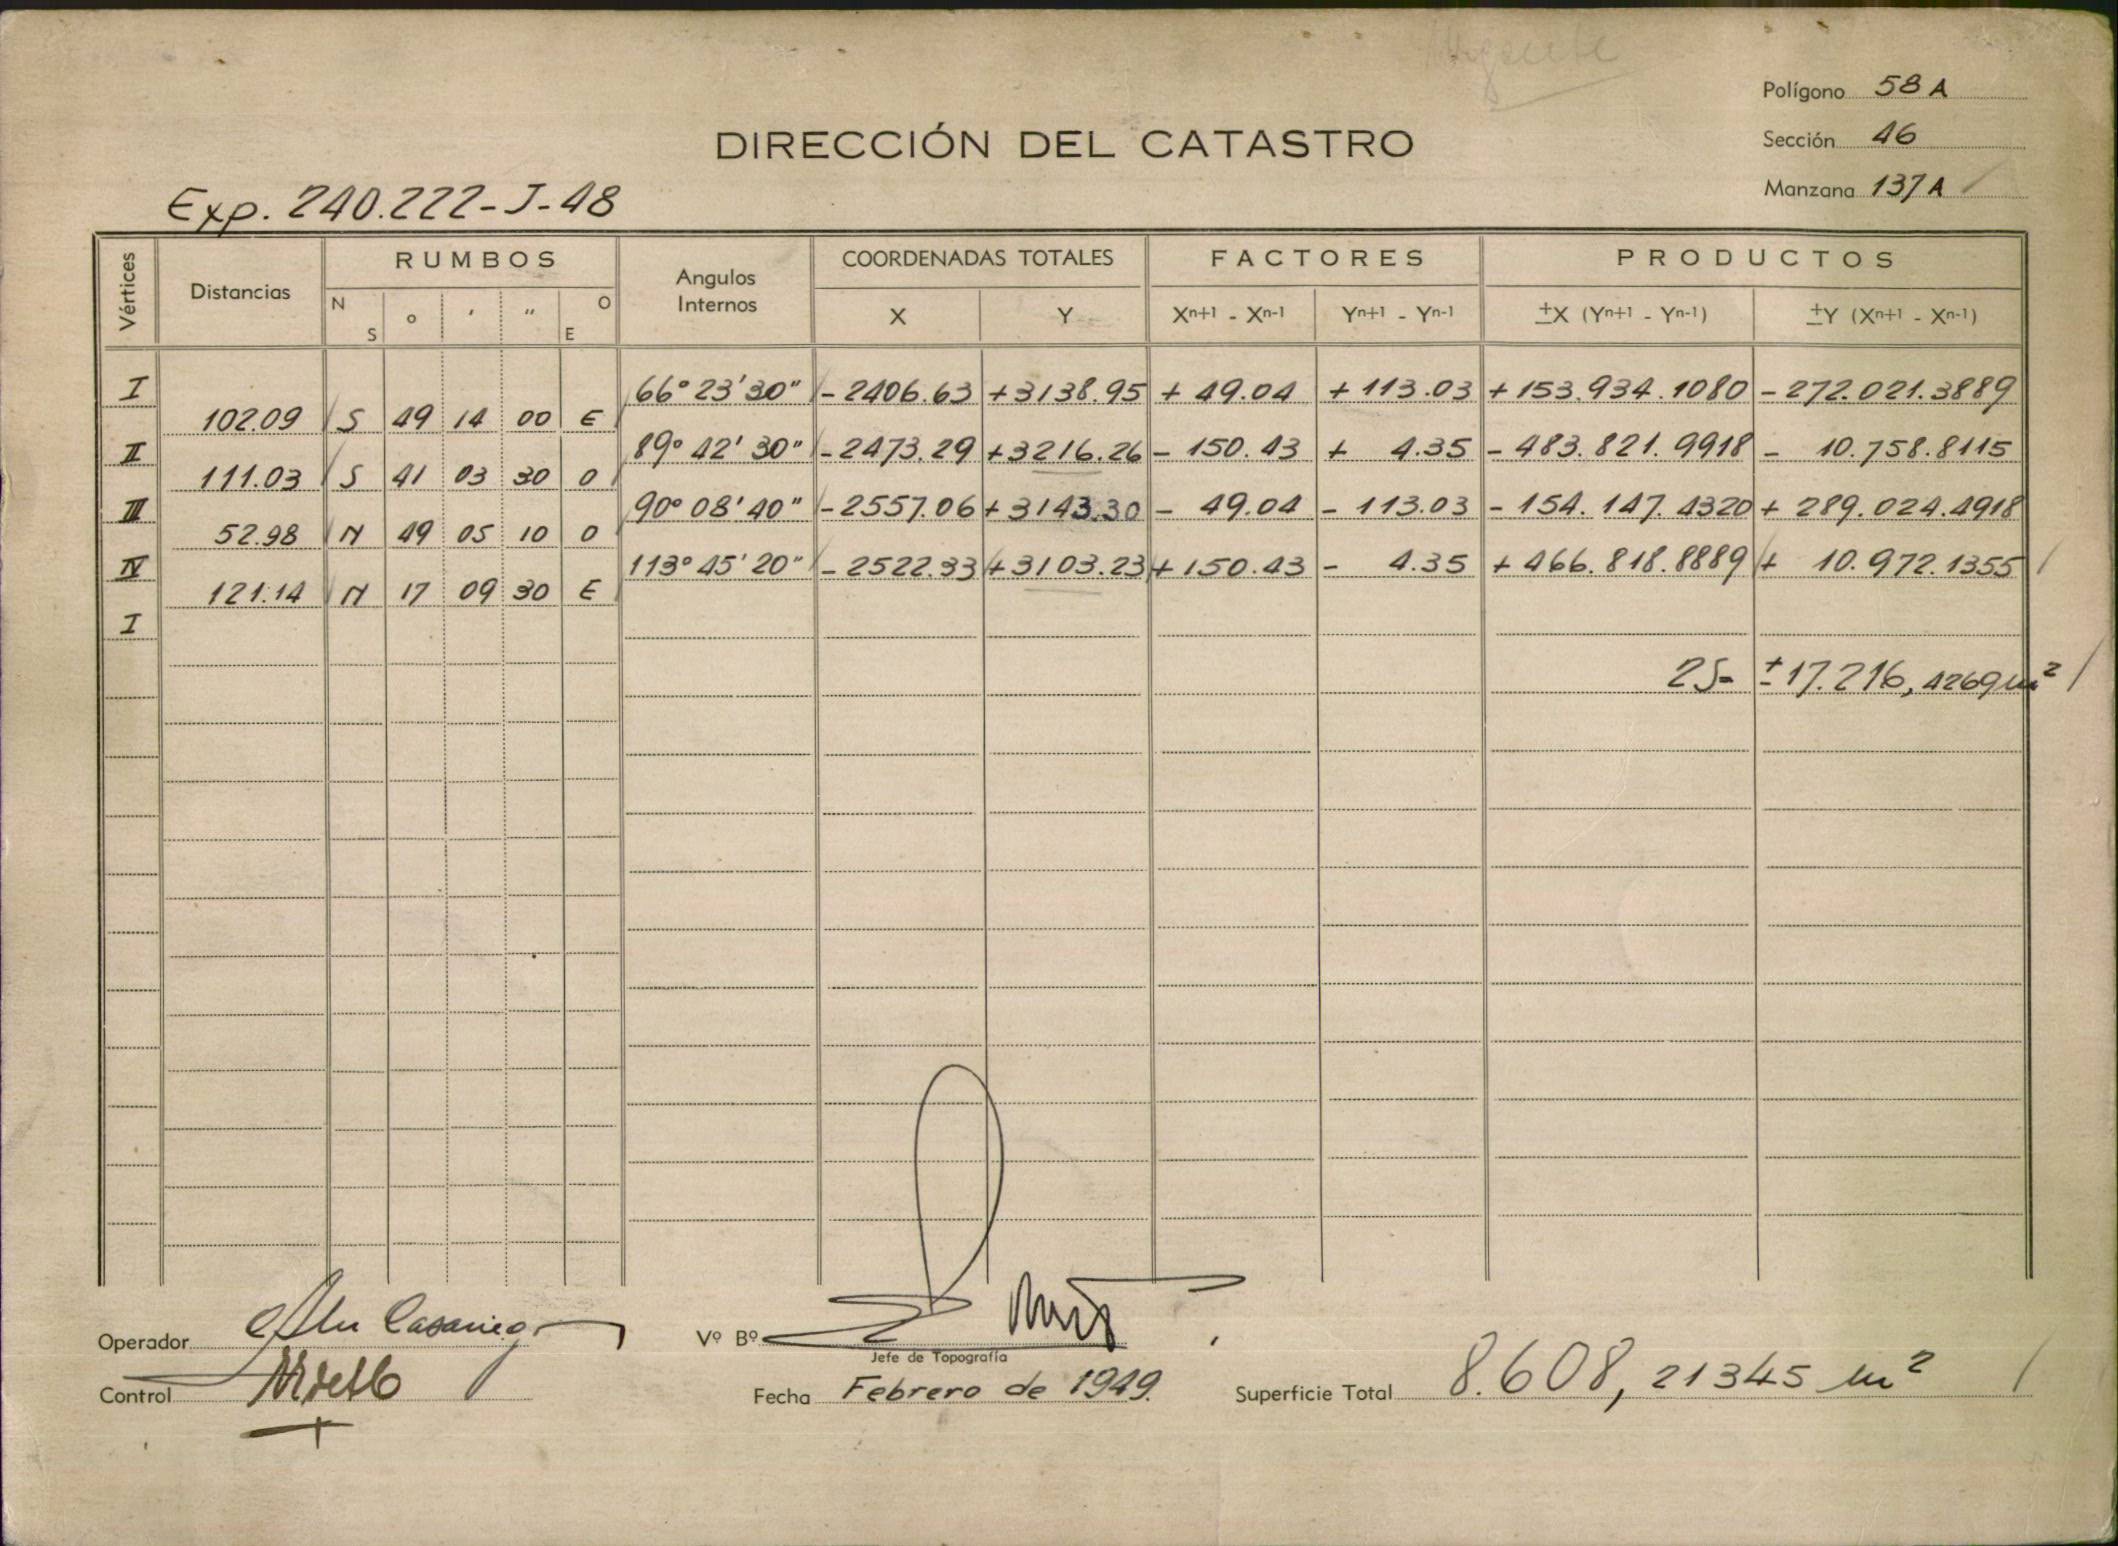 Urgente
Polígono 58 A
DIRECCIÓN DEL CATASTRO
Sección 46
Manzana 137 A
Exp. 240.222-J-48
Vértices Distancias RUMBOS Angulos Internos COORDENADAS TOTALES FACTORES PRODUCTOS
N S ° ' " O E X Y Xⁿ⁺¹ - Xⁿ⁻¹ Yⁿ⁺¹ - Yⁿ⁻¹ ±X (Yⁿ⁺¹ - Yⁿ⁻¹) ±Y (Xⁿ⁺¹ - Xⁿ⁻¹)
I 66° 23' 30" - 2406.63 + 3138.95 + 49.04 + 113.03 + 153.934.1080 - 272.021.3889
102.09 S 49 14 00 E
II 89° 42' 30" - 2473.29 + 3216.26 - 150.43 + 4.35 - 483.821.9918 - 10.758.8115
111.03 S 41 03 30 O
III 90° 08' 40" - 2557.06 + 3143.30 - 49.04 - 113.03 - 154.147.4320 + 289.024.4918
52.98 N 49 05 10 O
IV 113° 45' 20" - 2522.33 + 3103.23 + 150.43 - 4.35 + 466.818.8889 + 10.972.1355
121.14 N 17 09 30 E
I
2S= ±17.216,4269 m²
Operador
Vº Bº
Jefe de Topografía
Control
Fecha Febrero de 1949.
Superficie Total 8.608,21345 m²